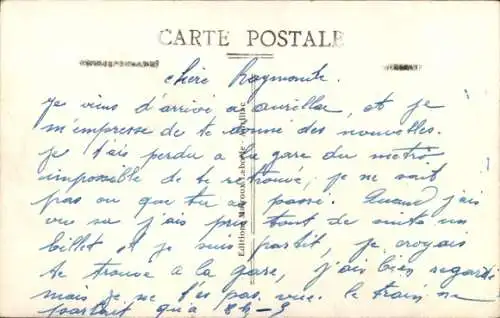 CARTE POSTALE
chère Raymonde.
Je viens d'arrivé a aurillac, et je
m'empresse de te donné des nouvelles.
je t'ais perdu a la gare du metro
impossible de te retrouvé, je ne sait
pas ou que tu as passé. Quand j'ais
vue sa j'ais pris tout de suite un
billet et je suis partit, je croyais
te trouvé a la gare, j'ais bien regardé
mais je ne t'es pas vue. le train ne
partait qu'a
Editions